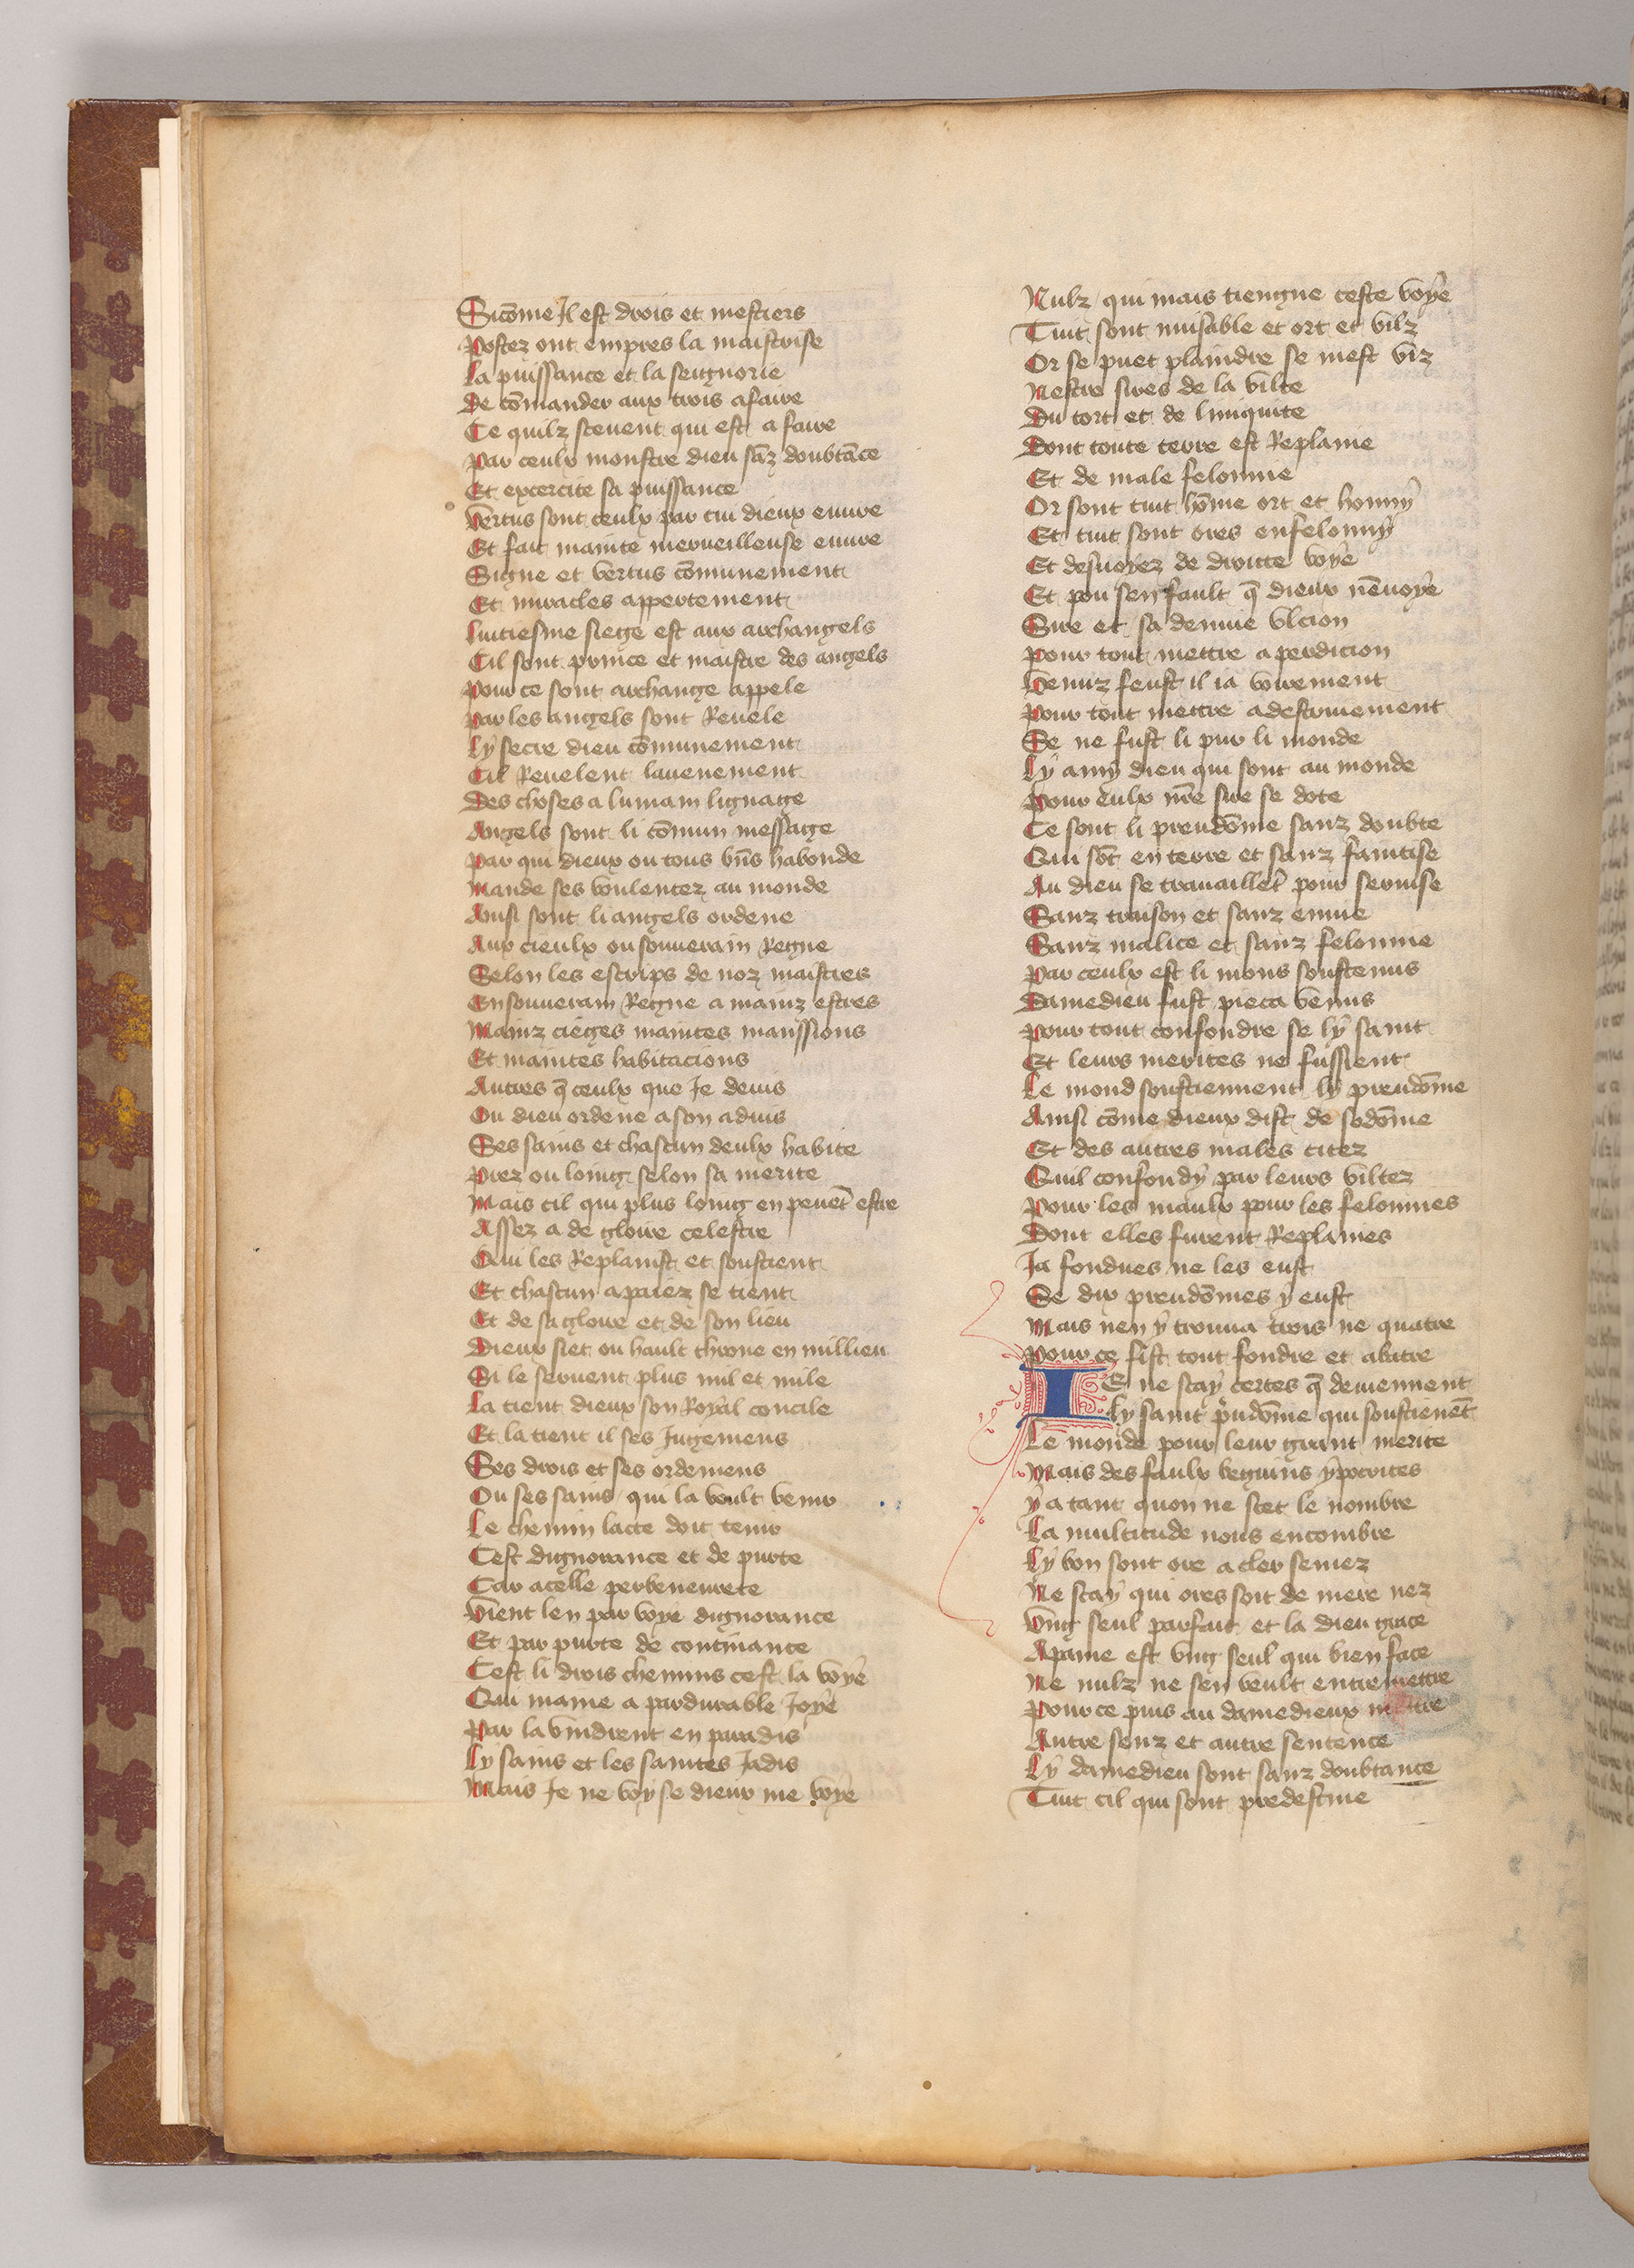 Sicōme Il est drois et mestiers
Postez ont empres la maistrise
La puissance et la seignorie
De cōmander aux trois afaire
Ce quilz scevent qui est a faire
Par ceulx monstre dieu sāz doubtāce
Et excercite sa puissance
Vertus sont ceulx par cui dieux euure
Et fait mainte merueilleuse euure
Signe et vertus cōmunement
Et miracles appertement
Luitiesme siege est aux archangels
Cil sont prince et maistre des angels
Pour ce sont archange appele
Par les angels sont Reuele
Ly secre dieu cōmunement
Cil Reuelent lauenement
Des choses a lumain lignage
Angels sont li cōmun message
Par qui dieux ou tous bn̄s habonde
Mande ses voulentez au monde
Ainsi sont li angels ordene
Aux cieulx ou souuerain Regne
Selon les escrips de noz maistres
En souuerain Regne a mainz estres
Mainz cieges maintes manssions
Et maintes habitacions
Autres q̄ ceulx que Je deuis
Ou dieu ordene a son aduis
Ses sains et chascun deulx habite
Prez ou loing selon sa merite
Mais cil qui plus loing en peuēt estre
Assez a de gloire celestre
Qui les Replanist et soustient
Et chascun apaiez se tient
Et de sa gloire et de son lieu
Dieux siet ou hault throne en millieu
Si le seruent plus mil et mile
La tient dieux son Royal concile
Et la tient il ses Jugemens
Ses drois et ses ordemens
Ou ses sains qui la veult venir
Le chemin lacte doit tenir
Cest dignorance et de purte
Car acelle perbeneurete
Vient len par voye dignorance
Et par purte de continance
Cest li drois chemins cest la voye
Qui maine a pardurable Joye
Par la vindrent en paradis
Ly sains et les saintes Jadis
Mais Je ne voy se dieux me voye
Nulz qui mais tiengne ceste voye
Tuit sont muisable et ort et vilz
Or se puet plaindre se mest viz
Nestre sires de la vilte
Du tort et de liniquite
Dont toute terre est Replaine
Et de male felonnie
Or sont tuit hōme ort et honny
Et tuit sont ores enfelonny
Et desuoyez de droitte voye
Et pou sen fault q̄ dieux nēuoye
Sire et sa denme vlcion
Pour tout mettre a perdicion
Venuz feust il ia voirement
Pour tout mettre adestruiement
Se ne fust li pur li monde
Ly amy dieu qui sont au monde
Pour eulx nr̄e sire se dote
Ce sont li preudōme sanz doubte
Qui sōt en terre et sanz faintise
Au dieu se trauaillēt pour seruise
Sanz traison et sanz enuie
Sanz malice et sanz felonnie
Par ceulx est li mons soustenus
Damedieu fust pieca venus
Pour tout confondre se ly saint
Et leurs merites ne fussient
Le mond soustiennent ly preudōme
Ainsi cōme dieux dist de sodōme
Et des autres males citez
Quil confondy par leurs viltez
Pour les maulx pour les felonnies
Dont elles furent Replanies
Ja fondues ne les eust
Se dix preudōmes y eust
Mais nen y trouua trois ne quatre
Pour ce fist tout fondre et abatre
IE ne scay certes q̄ deuiennent
Ly saint p̄udōme qui soustienēt
Le monde pour leur grant merite
Mais des faulx beguins ypocrites
Y a tant quon ne scet le nombre
La multitude nous encombre
Ly bon sont ore a cler semez
Ne scay qui ores soit de mere nez
Vng seul parfait et la dieu grace
Apaine est vng seul qui bien face
Ne nulz ne sen veult entremettre
Pour ce puis au damedieux mettre
Autre senz et autre sentence
Ly damedieu sont sanz doubtance
Tuit cil qui sont predestine